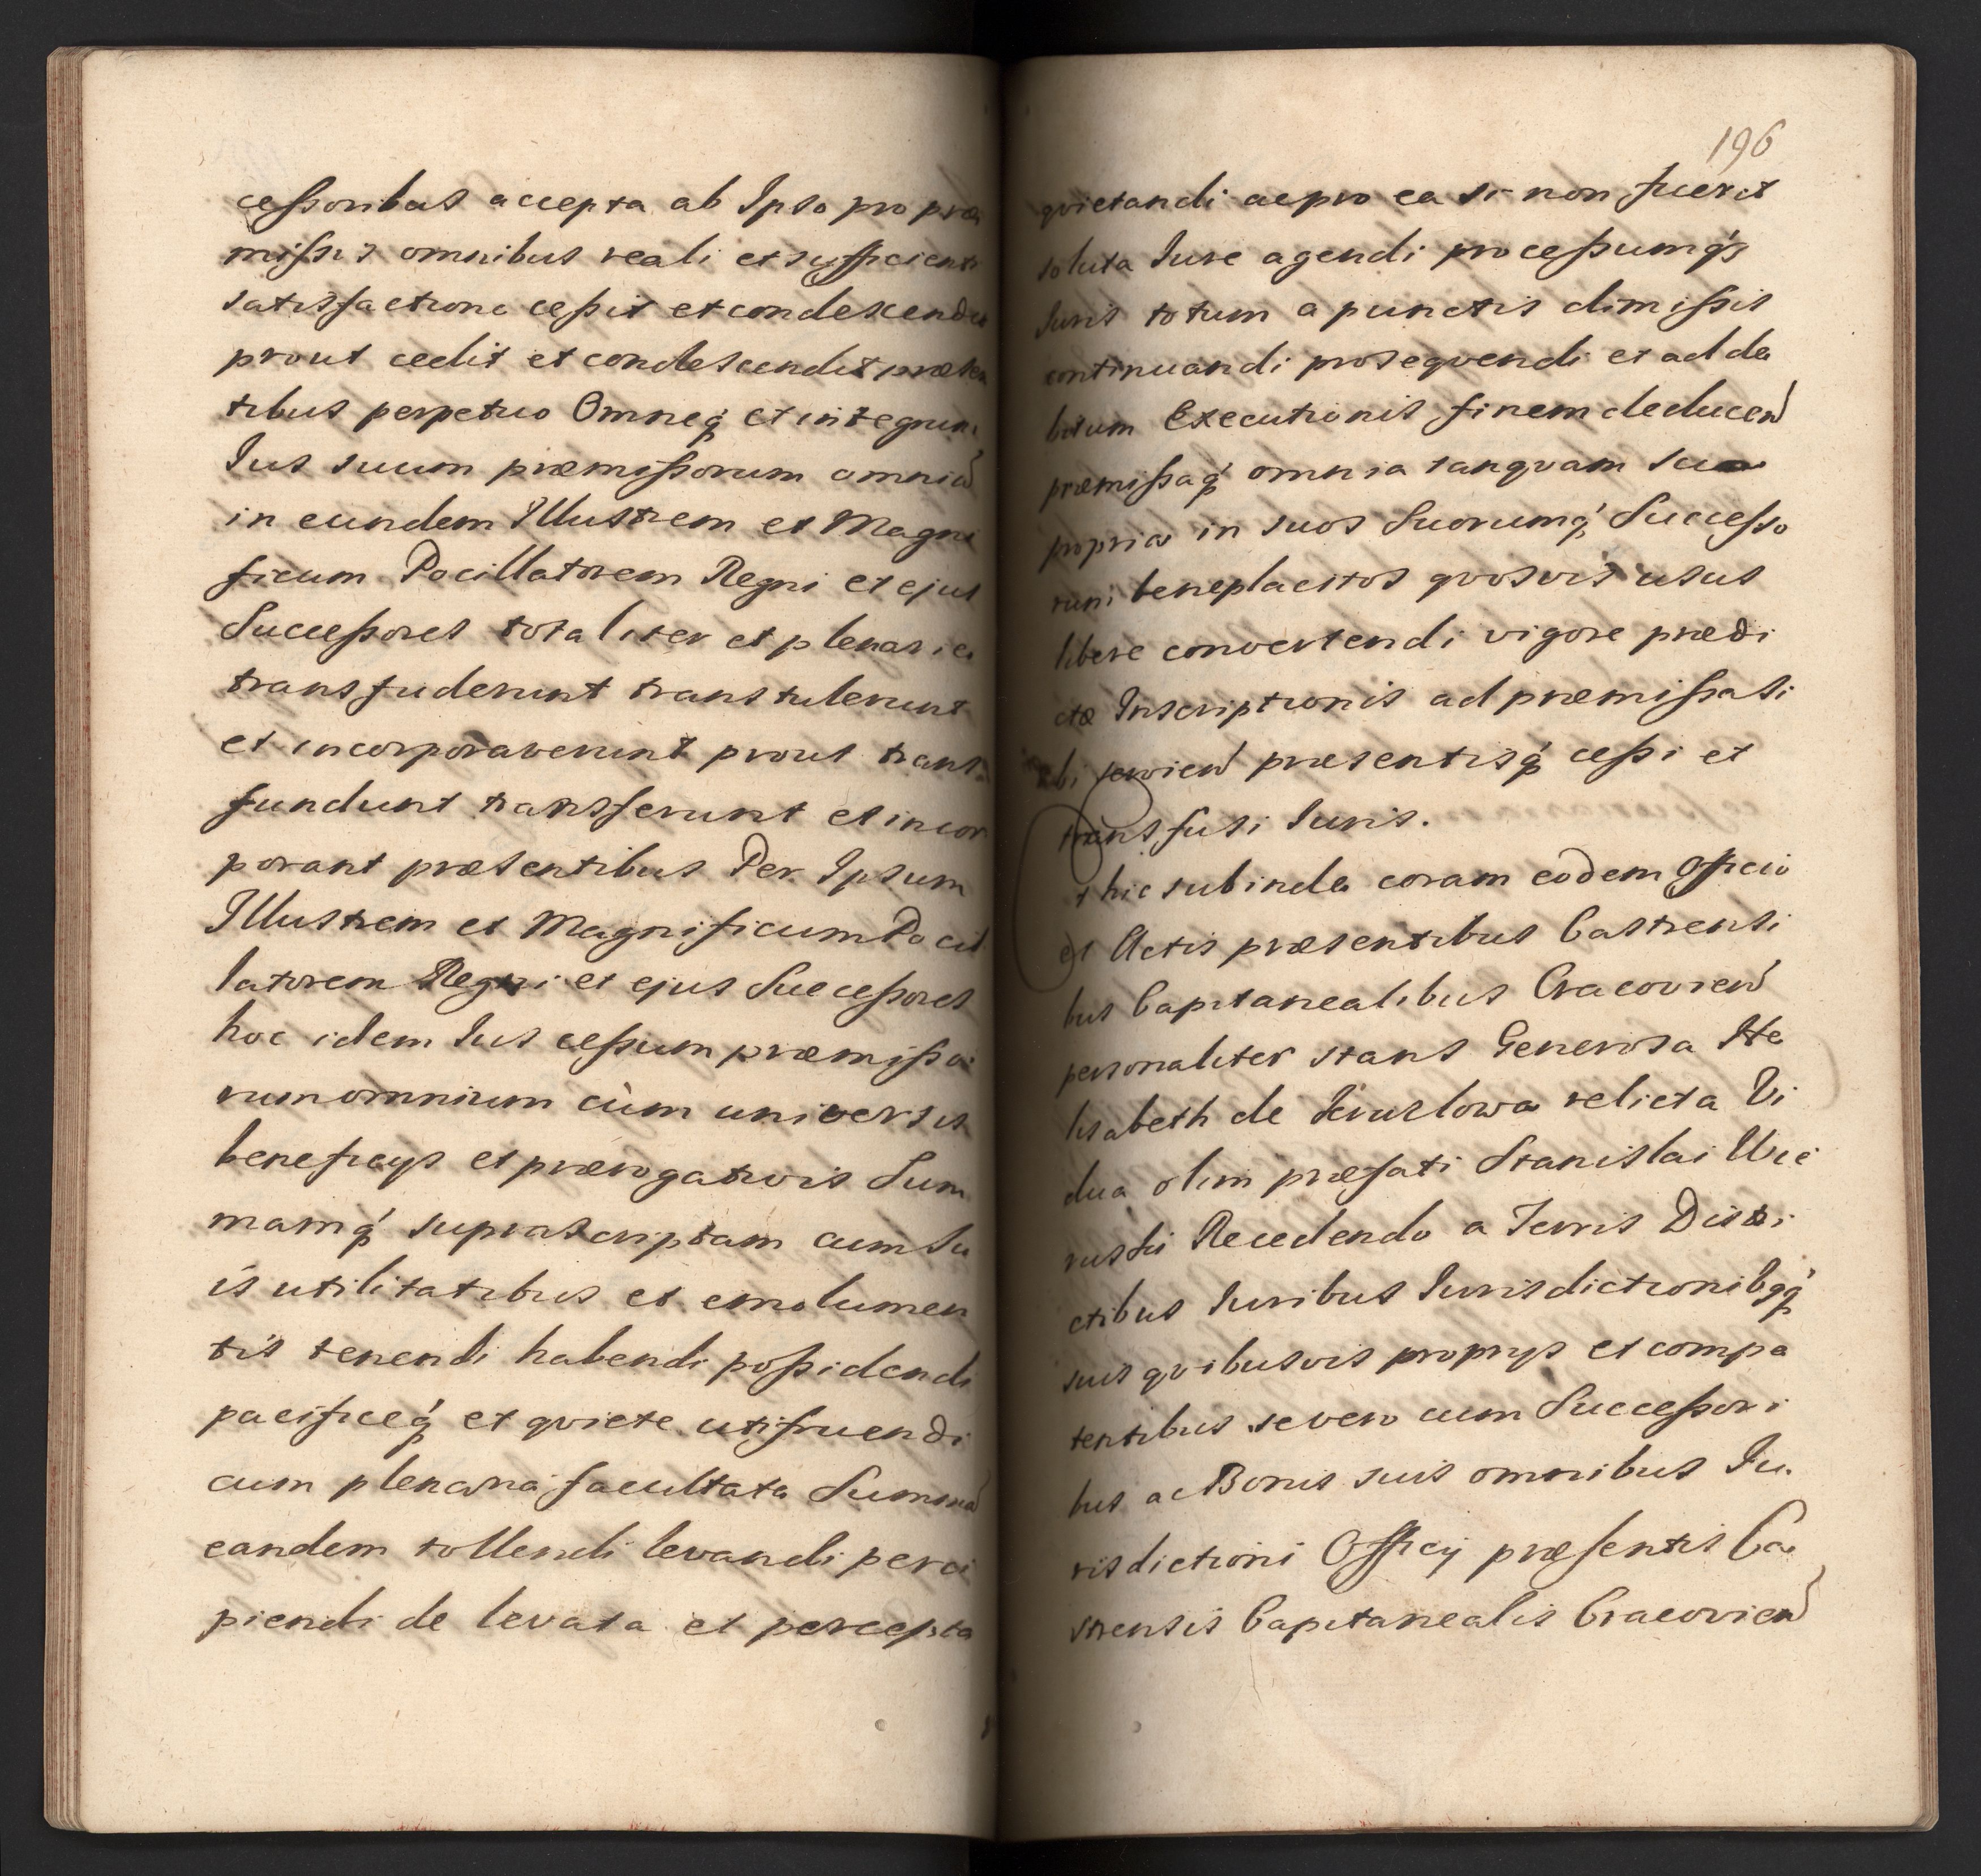 cessoribus accepta ab Ipso pro præ
missis omnibus reali et sufficienti
satisfactione cessit et condescendit
prout cedit et condescendit præsen
tibus perpetuo Omneq́ et integrum
Ius suum præmissorum omniũ
in eundem Illustrem et Magni
ficum Pocillatorem Regni et ejus
Successores totaliter et plenarie
transfuderunt transtulerunt
et incorporaverunt prout trans
fundunt transferunt et incor
porant præsentibus Per Ipsum
Illustrem et Magnificum Pocil
latorem Regni et ejus Successores
hoc idem Ius cessum præmisso
rum omnium cùm universis
beneficys et prærogativis Sum
mamq́ suprascriptam cum su
is utilitatibus et emolumen
tis tenendi habendi possidendi
pacificeq́ et qviete utifruendi
cum plenaria facultata Summã
eandem tollendi levandi perci
piendi de levata et percepta
196
qvietandi ac pro ea si non fuerit
soluta Iure agendi processumq́s
Iuris totum a punctis dimissis
continuandi proseqvendi et ad de
bitum Executionis finem deducen̄
præmissaq́ omnia tanqvam sua
propria in suos Suorumq́ Successo
rum beneplacitos qvosvis usus
libere convertendi vigore prædi
ctæ Inscriptionis ad præmissa si
bi servien̄ præsentisq́ cessi et
transfusi Iuris.
t hic subinde coram eodem Officio
et Actis præsentibus Castrensi
bus Capitanealibus Cracovien̄
personaliter stans Generosa He
lisabeth de relicta Vi
dua olim præfati Stanislai Wie
Recedendo a Terris Distri
ctibus Iuribus Iurisdictionibq́
suis qvibusvis proprys et compe
tentibus se vero cum Successori
bus ac Bonis suis omnibus Iu
risdictioni Officij præsentis Ca
strensis Capitanealis Cracovien̄